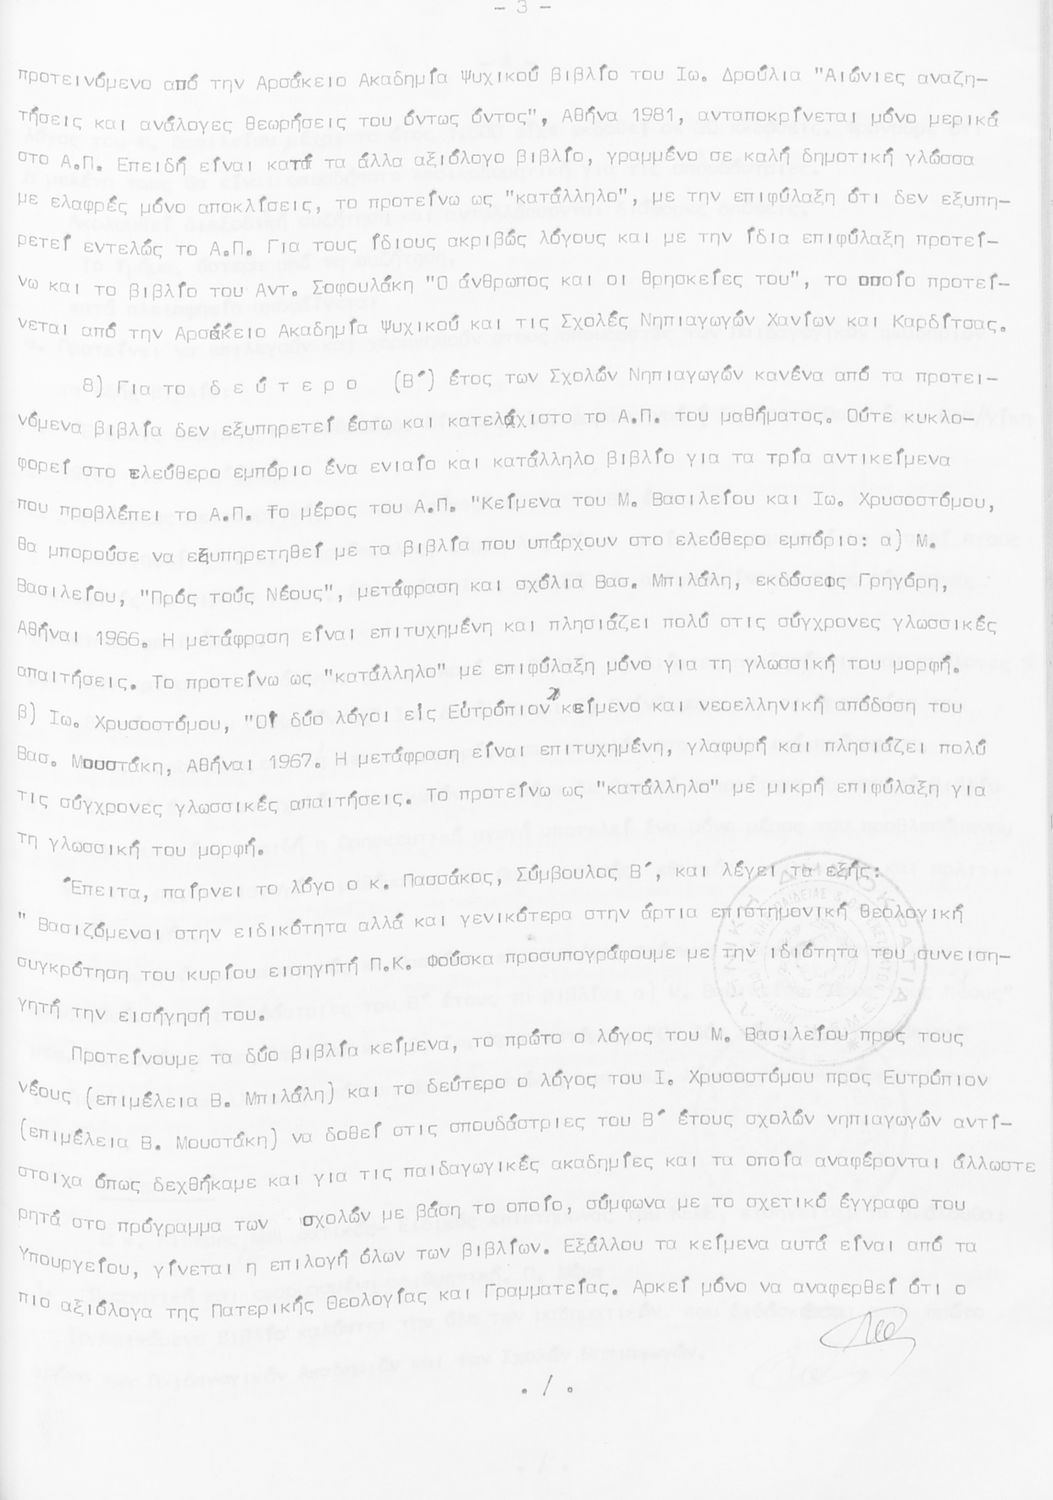 - 3 -
προτεινόμενο από την Αρσάκειο Ακαδημία Ψυχικού βιβλίο του Ιω. Δρούλια "Αιώνιες αναζη-
τήσεις και ανάλογες θεωρήσεις του όντως όντος", Αθήνα 1981, ανταποκρίνεται μόνο μερικά
στο Α.Π. Επειδή είναι κατά τα άλλα αξιόλογο βιβλίο, γραμμένο σε καλή δημοτική γλώσσα
με ελαφρές μόνο αποκλίσεις, το προτείνω ως "κατάλληλο", με την επιφύλαξη ότι δεν εξυπη-
ρετεί εντελώς το Α.Π. Για τους ίδιους ακριβώς λόγους και με την ίδια επιφύλαξη προτεί-
νω και το βιβλίο του Αντ. Σοφουλάκη "Ο άνθρωπος και οι θρησκείες του", το οποίο προτεί-
νεται από την Αρσάκειο Ακαδημία Ψυχικού και τις Σχολές Νηπιαγωγών Χανίων και Καρδίτσας.
8) Για το δεύτερο (Β΄) έτος των Σχολών Νηπιαγωγών κανένα από τα προτει-
νόμενα βιβλία δεν εξυπηρετεί έστω και κατελάχιστο το Α.Π. του μαθήματος. Ούτε κυκλο-
φορεί στο ελεύθερο εμπόριο ένα ενιαίο και κατάλληλο βιβλίο για τα τρία αντικείμενα
που προβλέπει το Α.Π. Το μέρος του Α.Π. "Κείμενα του Μ. Βασιλείου και Ιω. Χρυσοστόμου,
θα μπορούσε να εξυπηρετηθεί με τα βιβλία που υπάρχουν στο ελεύθερο εμπόριο: α) Μ.
Βασιλείου, "Πρός τούς Νέους", μετάφραση και σχόλια Βασ. Μπιλάλη, εκδόσεις Γρηγόρη,
Αθήναι 1966. Η μετάφραση είναι επιτυχημένη και πλησιάζει πολύ στις σύγχρονες γλωσσικές
απαιτήσεις. Το προτείνω ως "κατάλληλο" με επιφύλαξη μόνο για τη γλωσσική του μορφή.
β) Ιω. Χρυσοστόμου, "Οἱ δύο λόγοι εἰς Εὐτρόπιον" κείμενο και νεοελληνική απόδοση του
Βασ. Μουστάκη, Αθήναι 1967. Η μετάφραση είναι επιτυχημένη, γλαφυρή και πλησιάζει πολύ
τις σύγχρονες γλωσσικές απαιτήσεις. Το προτείνω ως "κατάλληλο" με μικρή επιφύλαξη για
τη γλωσσική του μορφή.
Έπειτα, παίρνει το λόγο ο κ. Πασσάκος, Σύμβουλος Β΄, και λέγει τα εξής:
" Βασιζόμενοι στην ειδικότητα αλλά και γενικότερα στην άρτια επιστημονική θεολογική
συγκρότηση του κυρίου εισηγητή Π.Κ. Φούσκα προσυπογράφουμε με την ιδιότητα του συνειση-
γητή την εισήγησή του.
Προτείνουμε τα δύο βιβλία κείμενα, το πρώτο ο λόγος του Μ. Βασιλείου προς τους
νέους (επιμέλεια Β. Μπιλάλη) και το δεύτερο ο λόγος του Ι. Χρυσοστόμου προς Ευτρόπιον
(επιμέλεια Β. Μουστάκη) να δοθεί στις σπουδάστριες του Β΄ έτους σχολών νηπιαγωγών αντί-
στοιχα όπως δεχθήκαμε και για τις παιδαγωγικές ακαδημίες και τα οποία αναφέρονται άλλωστε
ρητά στο πρόγραμμα των σχολών με βάση το οποίο, σύμφωνα με το σχετικό έγγραφο του
Υπουργείου, γίνεται η επιλογή όλων των βιβλίων. Εξάλλου τα κείμενα αυτά είναι από τα
πιο αξιόλογα της Πατερικής Θεολογίας και Γραμματείας. Αρκεί μόνο να αναφερθεί ότι ο
. / .